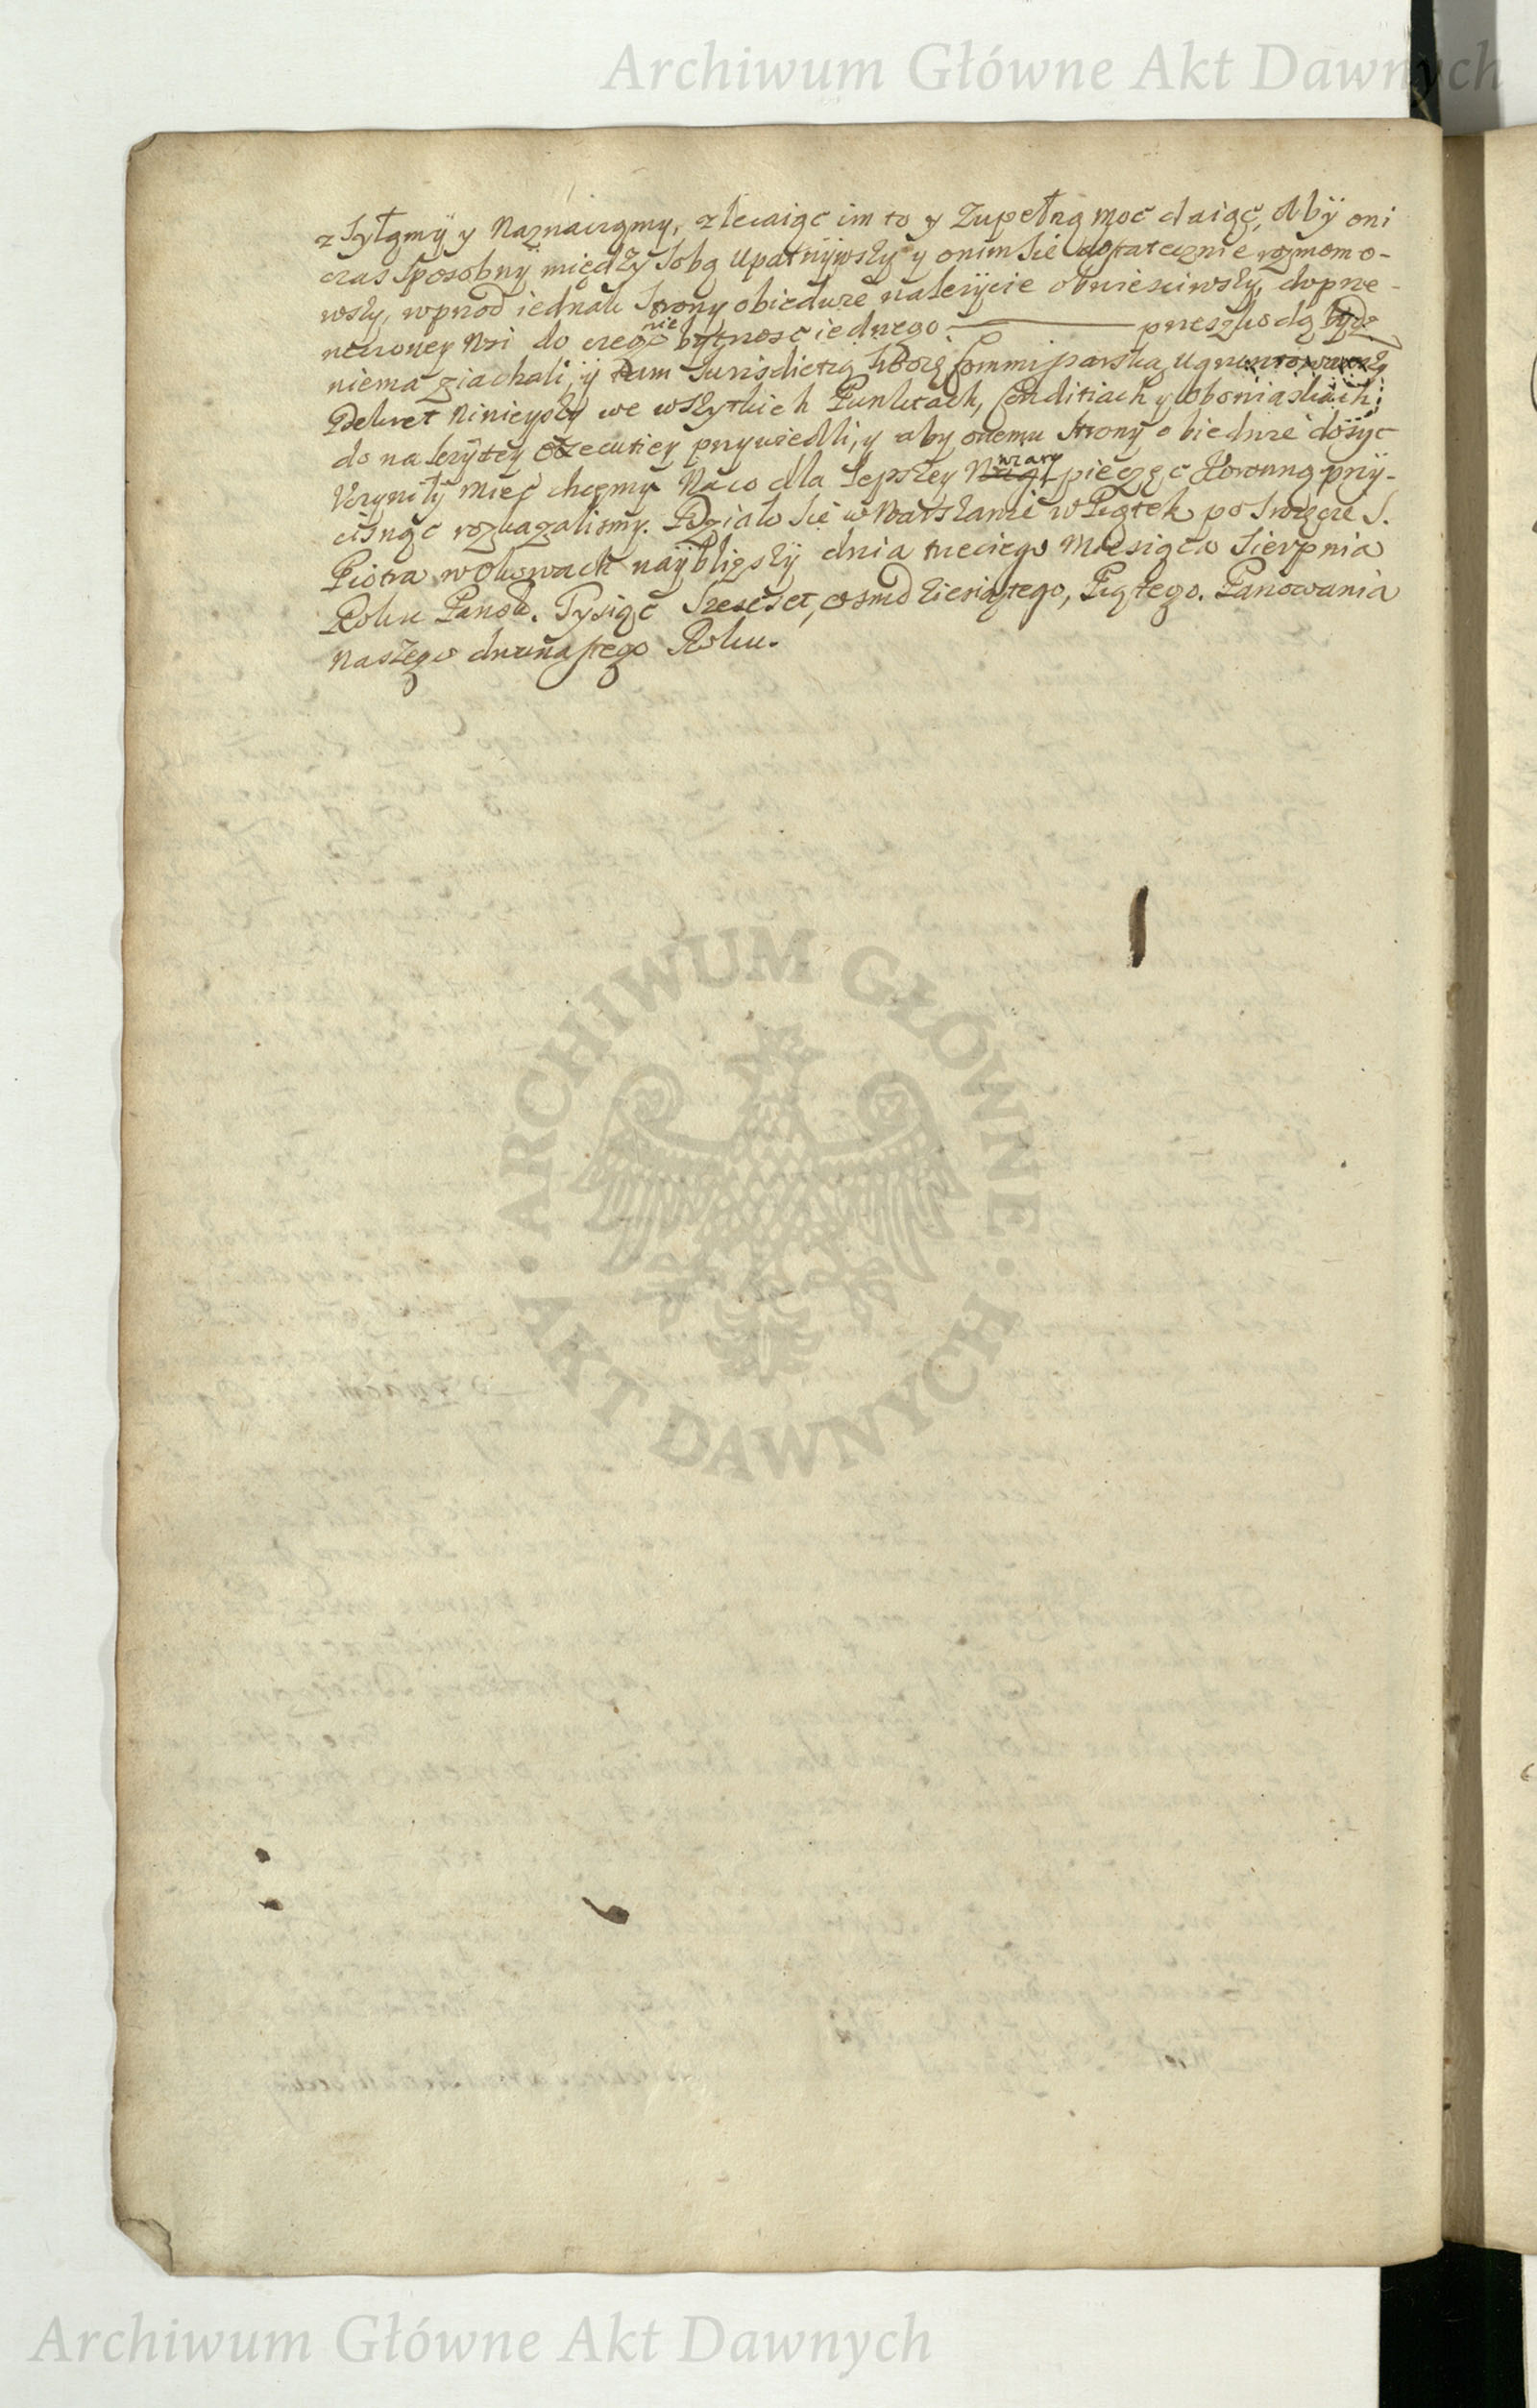 Archiwum Główne Akt Dawnych
z Syłamÿ y Naznaczamy, zlecaiąc im to y Zupełną moc daiąc, Aby oni
czas Sposobny między Sobą Upatrzÿwszÿ y onim Sie dostatecznie rozmomo-
wszy, wprzod iednak Strony obiedwie nalezÿcie obwiesciwszy, doprze-
rzeczoney Wsi do czego nie bÿtnosc iednego przeszkodą bydz
niema ziachali, ÿ tam Iurisdictią Swoię Commissarską
Dekret Ninieyszÿ we wszytkich Punktach, Conditiach y Obowiąskach
do nalezÿtey Execution przywiedli, y aby onemu Strony obiedwie dosÿc
Uczyniły mieć chcemy Na co dla lepszey wiary pieczęć Koronną przÿ-
cisnąc rozkazalismy. Działo Sie w Warszawie w Piątek po Swięcie S.
Piotra w Okowach naÿblizszÿ dnia trzeciego Miesiąca Sierpnia
Roku Pansk. Tysiąc Szescset, osmdziesiątego, Piątego. Panowania
Naszego dwunastego Roku.
ARCHIWUM GŁÓWNE
AKT DAWNYCH
Archiwum Główne Akt Dawnych